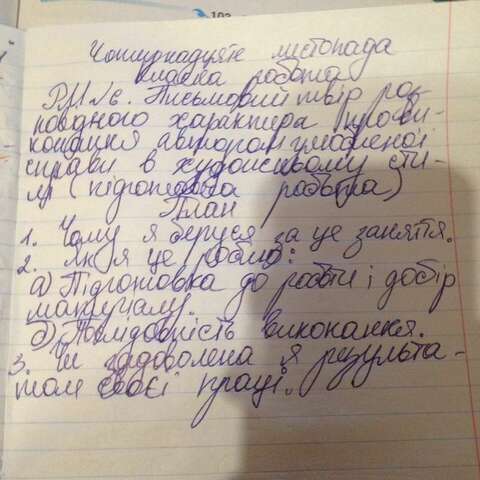 Чотирнадцяте листопада
класна робота
РМ №6. Письмовий твір роз-
повідного характера про ви-
конання автором улюбленої
справи в художньому сти-
лі (підготовча робота)
План
1. Чому я беруся за це заняття.
2. Як я це роблю:
а) Підготовка до роботи і добір
матеріалу.
б) Послідовність виконання.
3. Чи задоволена я результа-
том своєї праці.